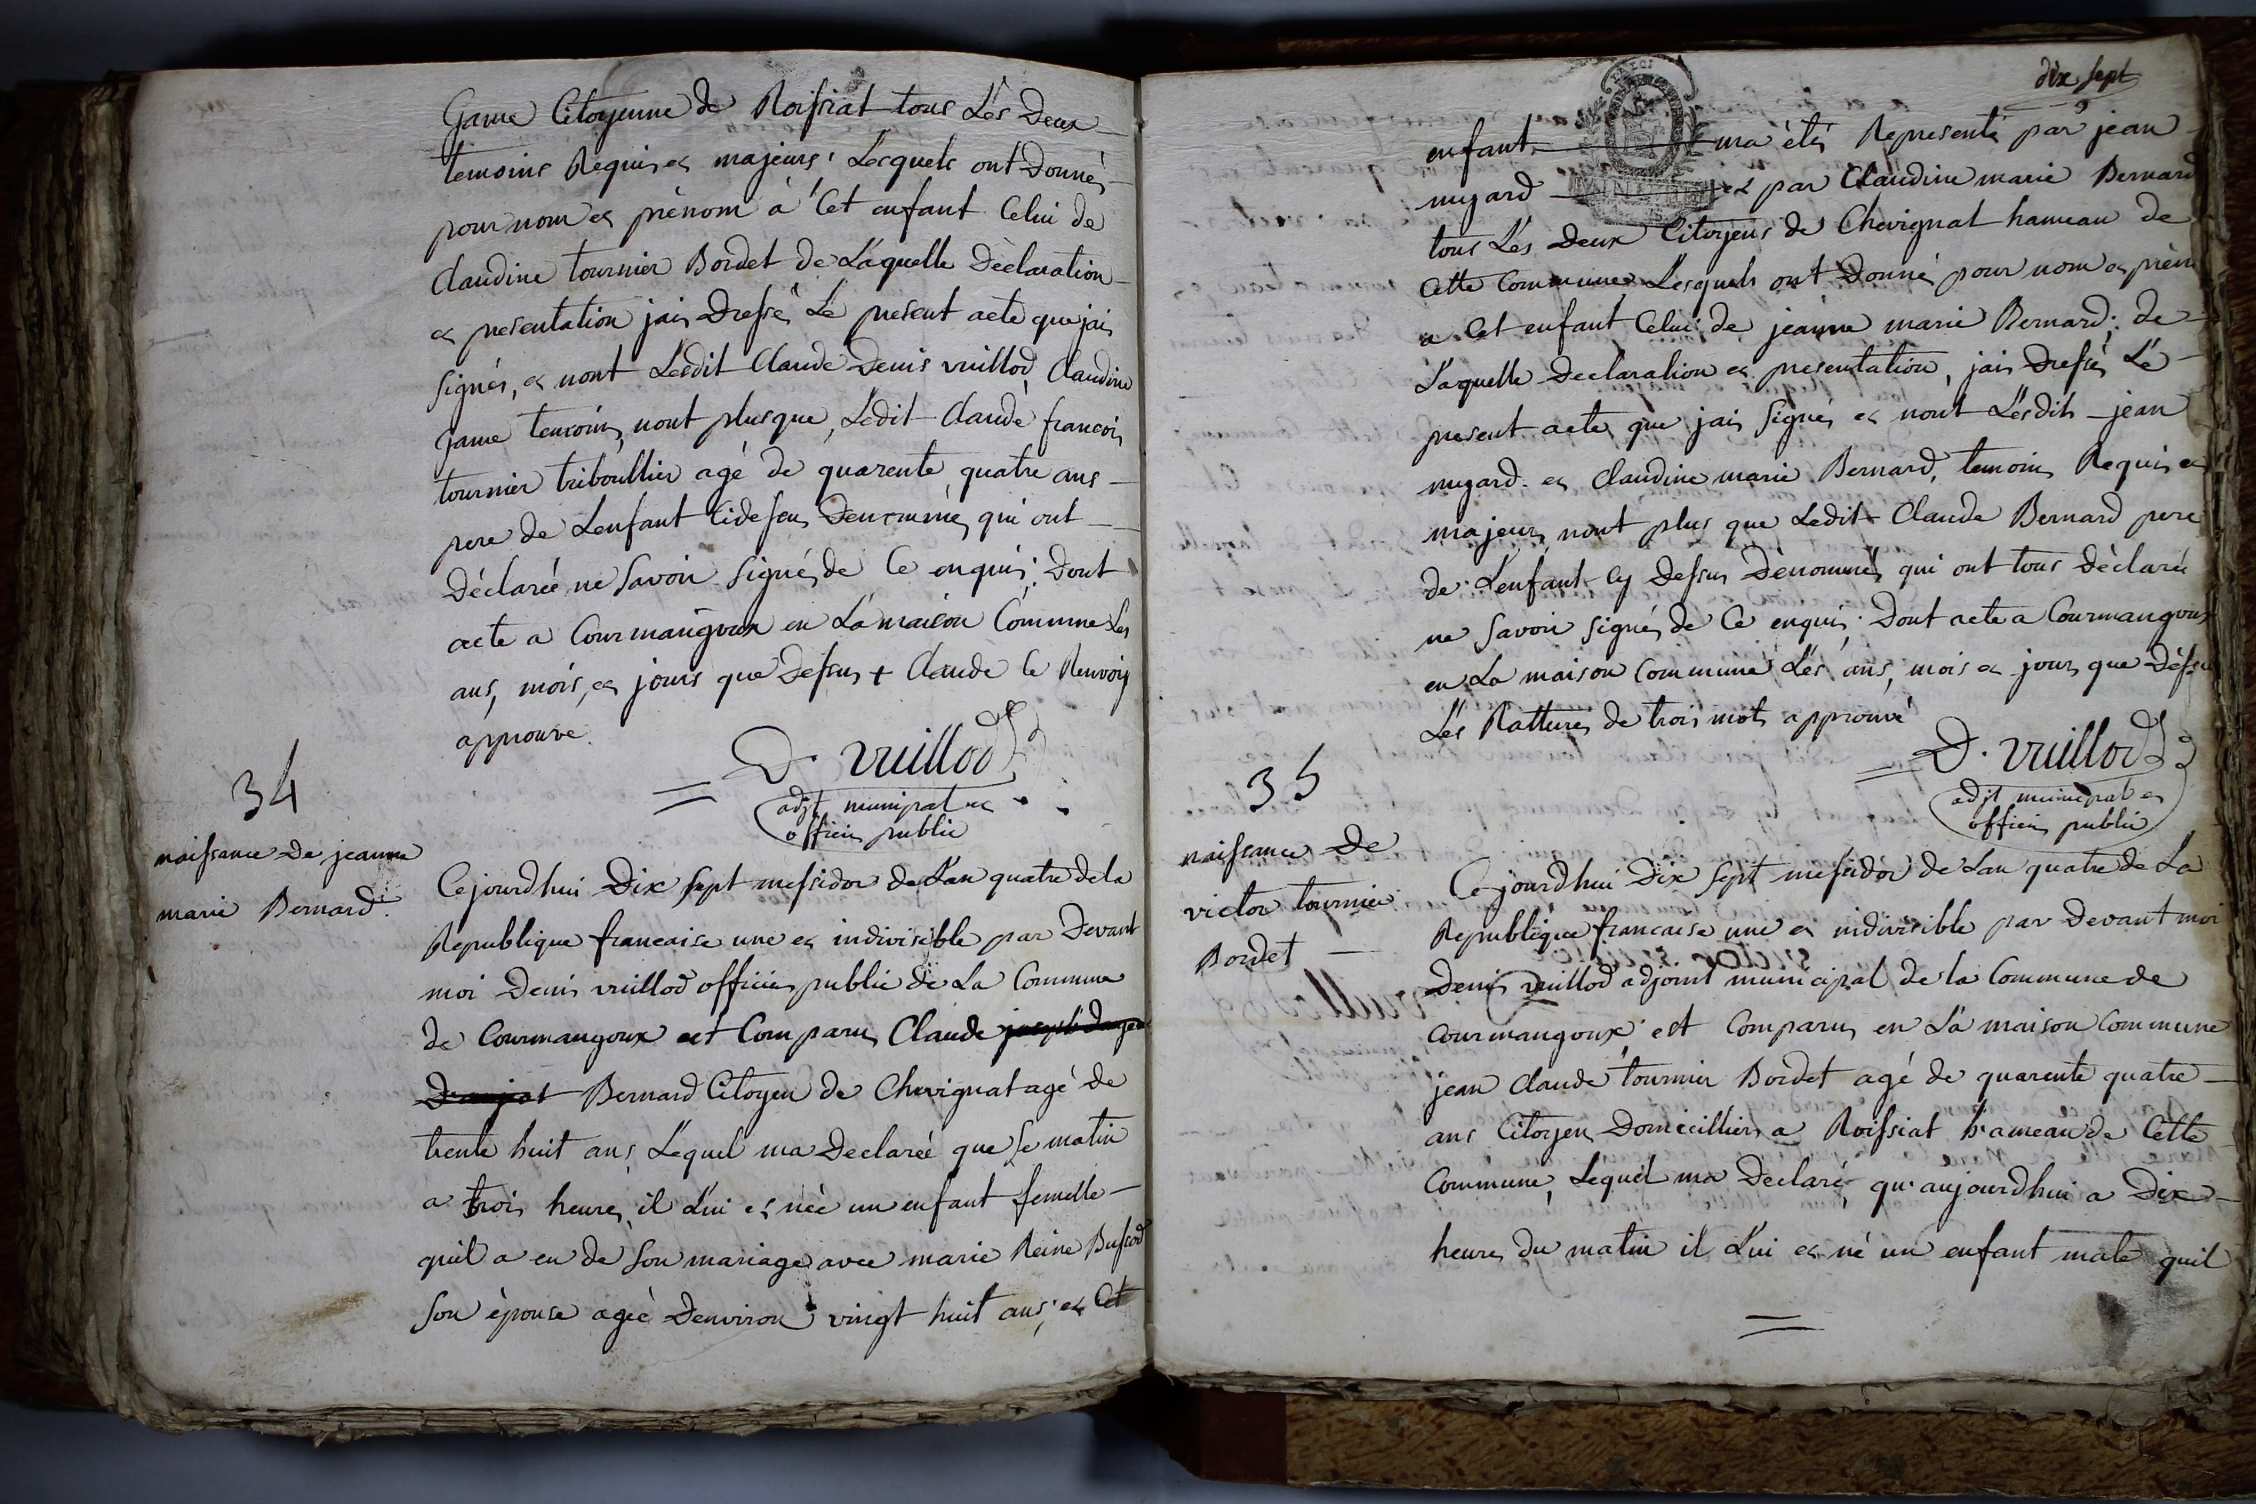 Game Citoyenne de Roissiat tous Les Deux
temoins Requis et majeurs, Lesquels ont Donnés
pour nom et prénom à Cet enfant Celui de
Claudine tournier Bordet de Laquelle Déclaration
et presentation jais Dressé Le present acte que jais
signés, et nont Lesdit Claude Denis vuillod, Claudine
Game temoins, nont plus que, Ledit Claude francois
tournier triboullier agé de quarente quatre ans
pere de Lenfant Cidessus Denommé, qui ont
Déclarée ne Savoir signés de Ce enquis, Dont
acte a Courmangoux en La maison Commune Les
ans, mois, et jours que Dessus + Claude le Renvoy
approuve.
D. vuillod
adjt municipal et
officier public
34
naissance de jeanne
marie Bernard
Cejourdhui Dix sept messidor de Lan quatre dela
Republique francaise une et indivisible par Devant
moi Denis vuillod officier public de La Commune
de Courmangoux est Comparus Claude
Bernard Citoyen de Chevignat agé de
trente huit ans, Lequel ma Declareé que Se matin
a trois heures, il Lui es née un enfant femelle
quil a eu de Son mariage avec marie Reine
Son épouse ageé Denviron vingt huit ans; et Cet
dix sept
enfant ma étés Representé par jean
nugard et par Claudine marie Bernard
tous Les Deux Citoyens de Chevignat hameau de
Cette Commune, Lesquels ont Donné pour nom et prén
a Cet enfant Celui de jeanne marie Bernard; de
Laquelle Declaration et presentation, jais Dressés Le
present acte que jais signés et nont Lesdits jean
nugard et Claudine marie Bernard, temoins Requis et
majeurs nont plus que Ledit Claude Bernard pere
de Lenfant Cy Dessus Dénommés qui ont tous Déclarée
ne Savoir signés de Ce enquis; Dont acte a Courmangoux
en La maison Commune Les ans, mois et jours que Dessu
Les Rattures de trois mots approuvé
D. vuillod
adjt municipal et
officier public
35
naissance de
victor tournier
Bordet
Cejourdhui Dix Sept messidor de Lan quatre de La
Republique francaise une et indivisible par Devant moi
Denis vuillod adjoint municipal de la Commune de
Courmangoux est Comparus en La maison Commune
jean Claude tournier Bordet agé de quarente quatre
ans Citoyen Domicilliers a Roissiat hameau de Cette
Commune, Lequel ma Declaré, qu'aujourdhui a Dix
heures du matin il Lui es né un enfant male quil